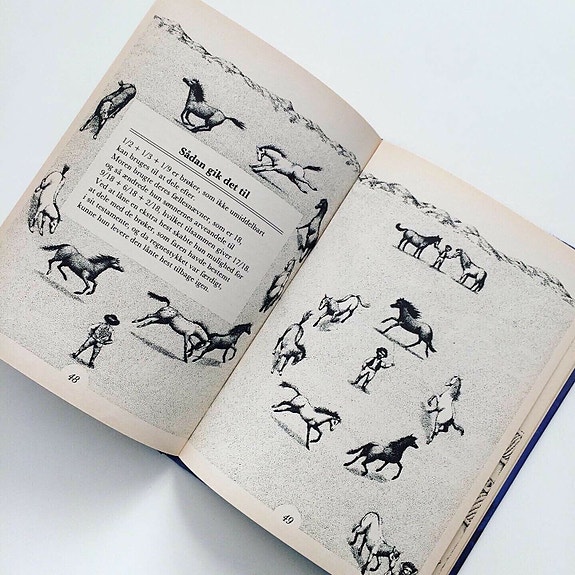 Sådan gik det til
1/2 + 1/3 + 1/9 er brøker, som ikke umiddelbart
kan bruges til at dele efter.
Moren brugte deres fællesnævner, som er 18,
og så ændrede hun sønnernes arveandele til
9/18 + 6/18 + 2/18, hvilket tilsammen giver 17/18.
Ved at låne en ekstra hest skabte hun mulighed for
at dele med de brøker, som faren havde bestemt
i sit testamente, og da regnestykket var færdigt,
kunne hun levere den lånte hest tilbage igen.
48
49